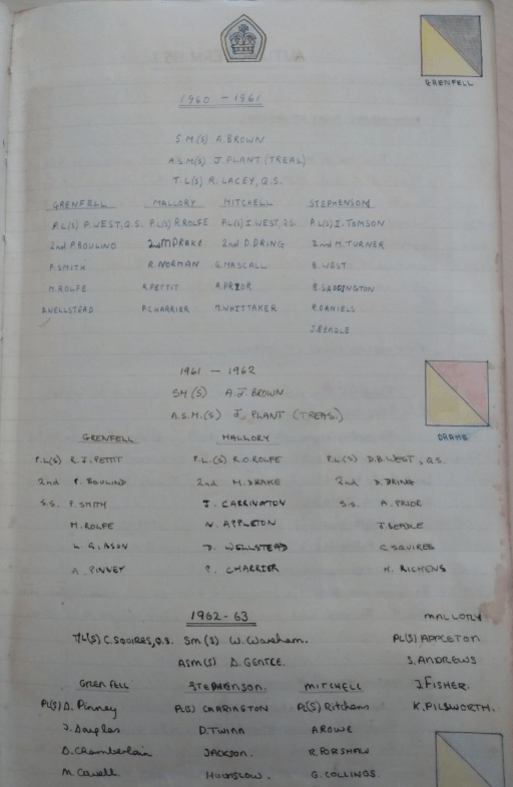 GRENFELL
1960 - 1961
S.M.(S) A. BROWN
A.S.M(S) J. PLANT (TREAS)
T.L(S) R. LACEY, Q.S.
GRENFELL MALLORY MITCHELL STEPHENSON
P.L(S) P. WEST, Q.S. P.L(S) R. ROLFE P.L(S) I. WEST, Q.S. P.L(S) I. TOMSON
2nd P. BOULIND 2nd M DRAKE 2nd D. DRING 2nd M. TURNER
P. SMITH R. NORMAN G. MASCALL B. WEST
M. ROLFE R. PETTIT A. PRIOR B. SADDINGTON
D. WELLSTEAD P. CHARRIER M. WHITTAKER P. DANIELS
J. BEADLE
1961 - 1962
SM (S) A. J. BROWN
A.S.M.(S) J. PLANT (TREAS.)
DRAKE
GRENFELL MALLORY
P.L(S) R. J. PETTIT P.L.(S) R.O. ROLFE P.L(S) D.B. WEST, Q.S.
2nd P. BOULIND 2nd M. DRAKE 2nd D. DRING
S.S. P. SMITH J. CARRINGTON S.S. A. PRIOR
M. ROLFE N. APPLETON J. BEADLE
L. GLASON D. WELLSTEAD C. SQUIRES
A. PINNEY P. CHARRIER H. RICHENS
1962-63 MALLORY
T/L(S) C. SQUIRES, Q.S. SM (S) W. Wareham. PL(S) APPLETON
ASM(S) D. GENTLE. S. ANDREWS
GRENFELL STEPHENSON. MITCHELL J. FISHER.
PL(S) A. Pinney PL(S) CARRINGTON PL(S) Ritchens K. PILSWORTH.
J. Douglas D. TWINN A ROWE
D. Chamberlain JACKSON. R. FORSHAW
M. Cavell HOUNSLOW. G. COLLINGS.